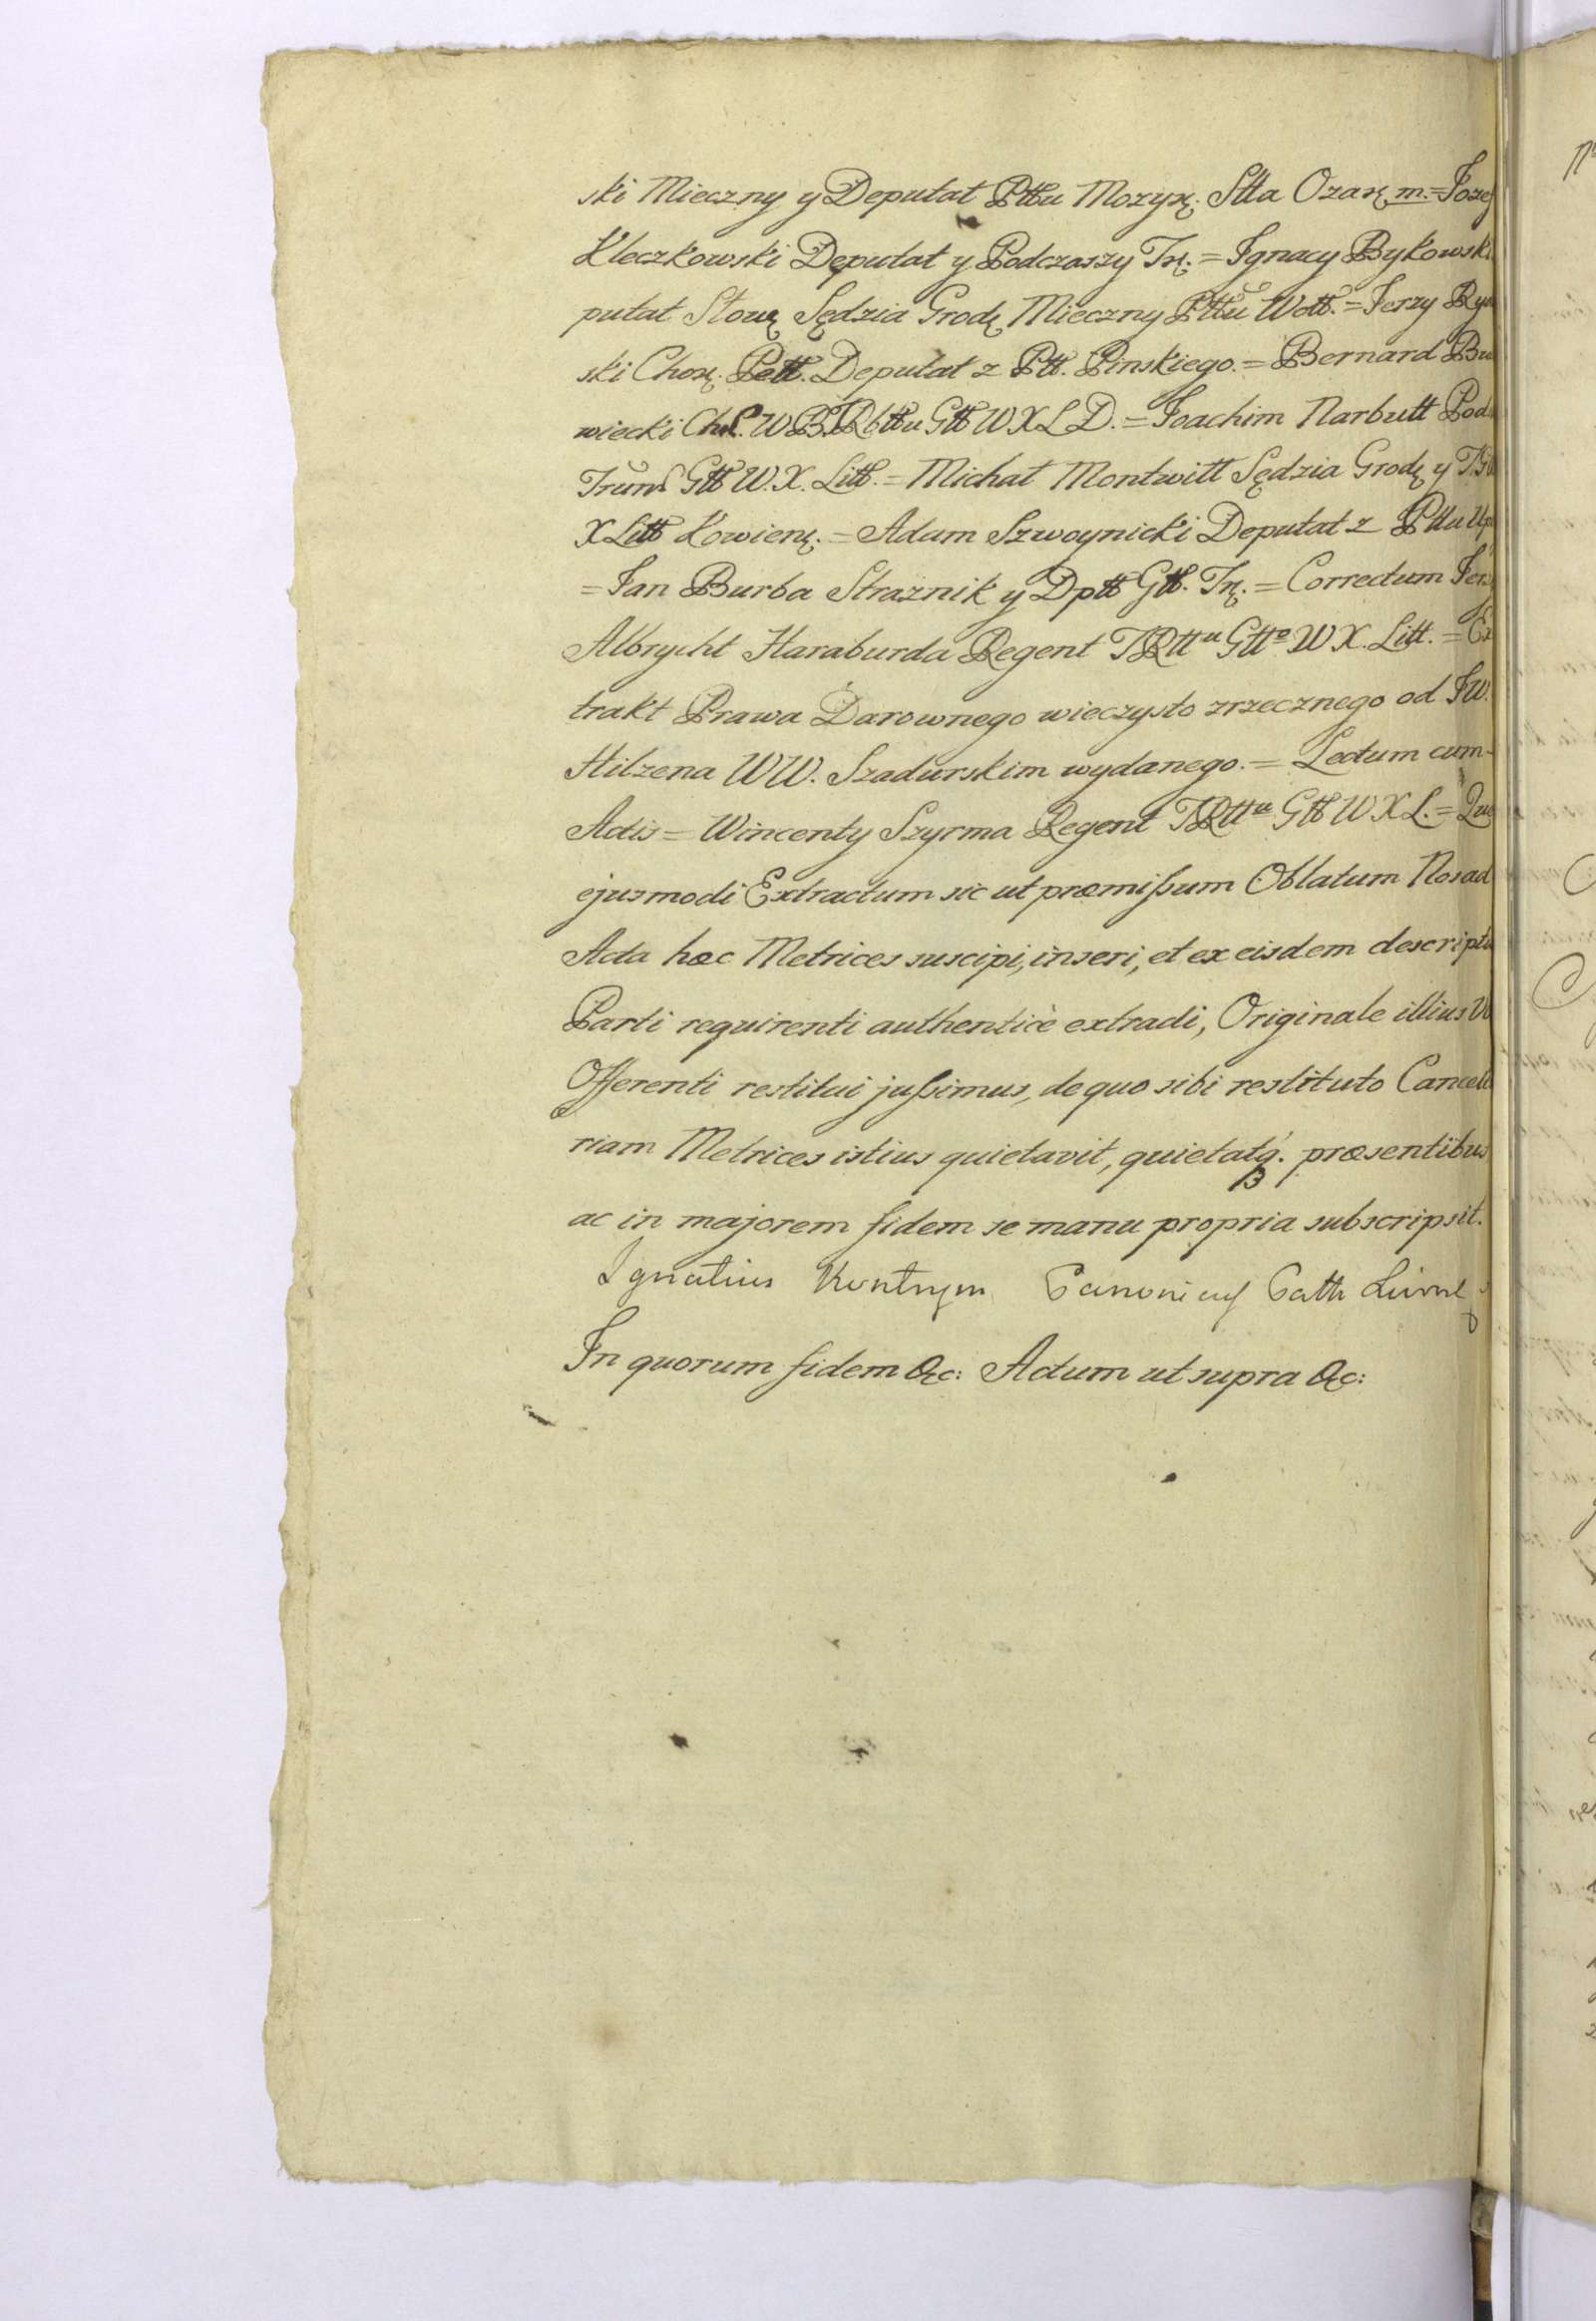 ski Mieczny y Deputat Pttu Mozyrſ. Stta Ozarſ m. = Joze
Kleczkowski Deputat y Podczaszy Trſ. = Ignacy Bykowski
putat Stowę Sędzia Grodſ Mieczny Pttu Wołł. = Jerzy
ski Chorſ. Pett. Deputat z Ptt. Pinskiego. = Bernard Bu
wiecki W Gtt W X L D. = Joachim Narbutt Pod
Gtt W. X. Litt. = Michał Montwiłł Sędzia Grodſ y
X Litt Kowienſ. = Adam Szwoynicki Deputat z Pttu Up
= Jan Burba Straznik y Dptt Gtt. Trſ. = Correctum Jer
Albrycht Haraburda Regent TRttu Gttº W X. Litt. = Ex
trakt Prawa Darownego wieczysto zrzecznego od JW.
Hilzena WW. Szadurskim wydanego. = Lectum cum
Actis = Wincenty Szyrma Regent TRttu Gtt W X L. = Quo
ejusmodi Extractum sic ut præmißum Oblatum Nos ad
Acta hæc Metrices suscipi, inseri, et ex eisdem descriptu
Parti requirenti authenticè extradi, Originale illius
Offerenti restitui jußimus, de quo sibi restituto Cancell
riam Metrices istius quietavit, quietatq́. præsentibus
ac in majorem fidem se manu propria subscripsit.
Ignatius Kontrym Canonicus Cath Livonſ
In quorum fidem &c: Actum ut supra &c: